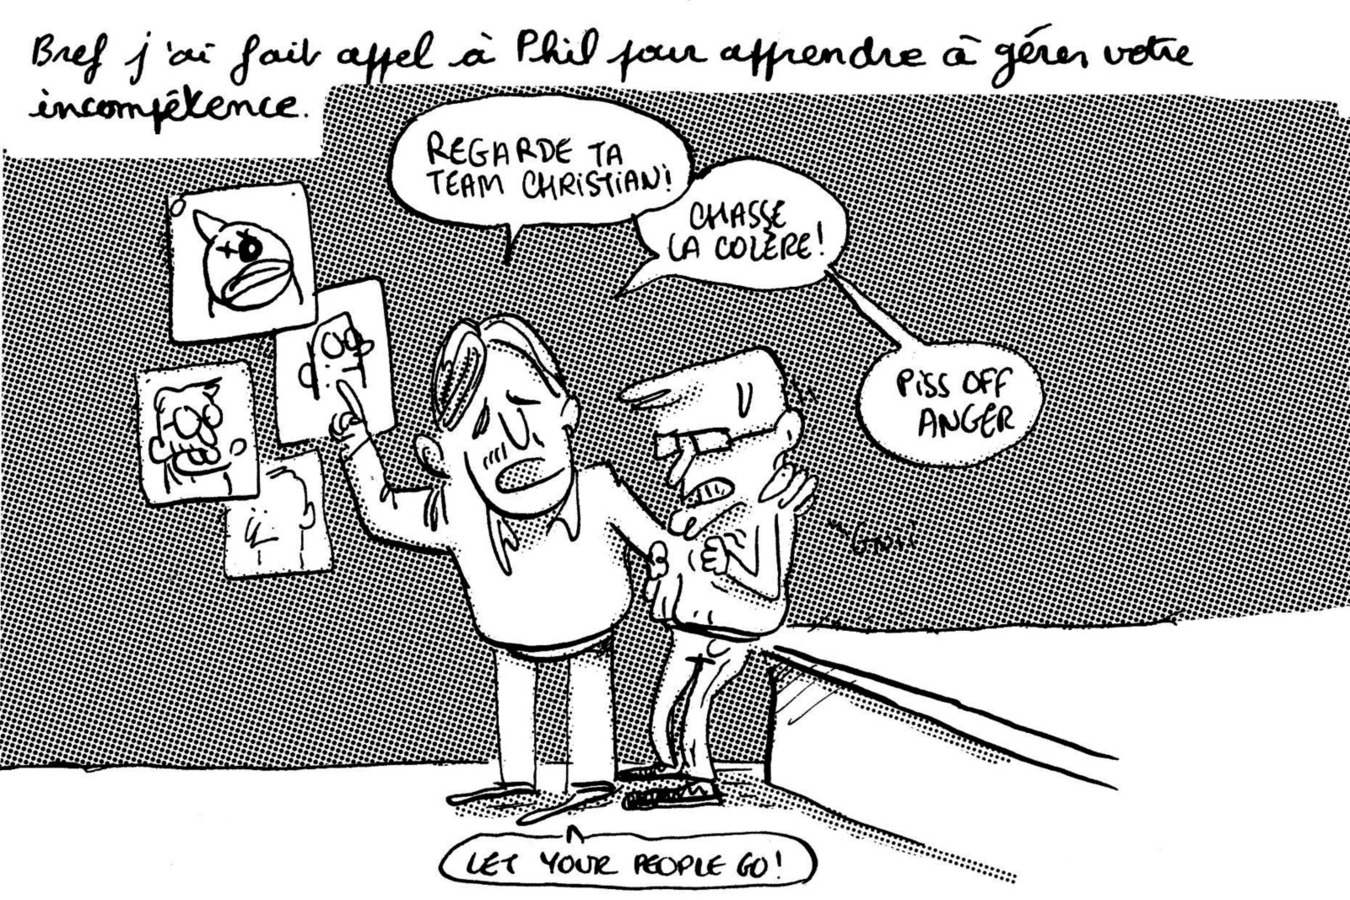 Bref j'ai fait appel à Phil pour apprendre à gérer votre
incompétence.
REGARDE TA
TEAM CHRISTIAN!
CHASSE
LA COLÈRE!
PISS OFF
ANGER
GNii
LET YOUR PEOPLE GO!